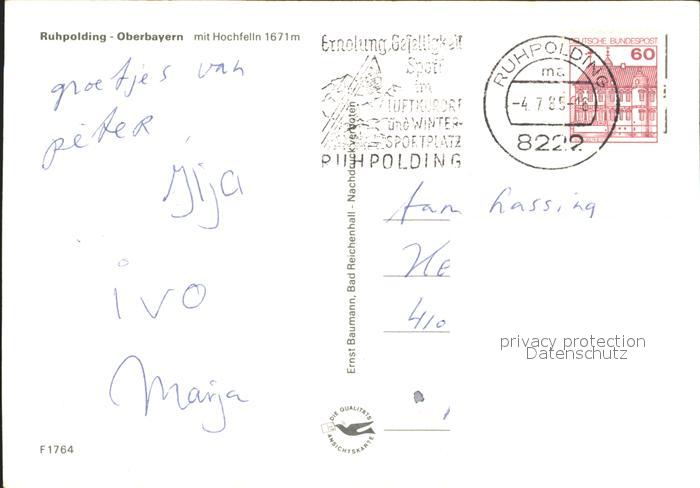 Ruhpolding - Oberbayern mit Hochfelln 1671 m
groetjes van
peter
ivo
Marja
F 1764
Erholung, Geselligkeit
Sport
im
LUFTKURORT
und WINTER-
SPORTPLATZ
RUHPOLDING
RUHPOLDING
ma
-4.7.85-16
8222
DEUTSCHE BUNDESPOST
60
Ernst Baumann, Bad Reichenhall - Nachdruck verboten
fam
He
410
privacy protection
Datenschutz
DIE QUALITÄTS
ANSICHTSKARTE